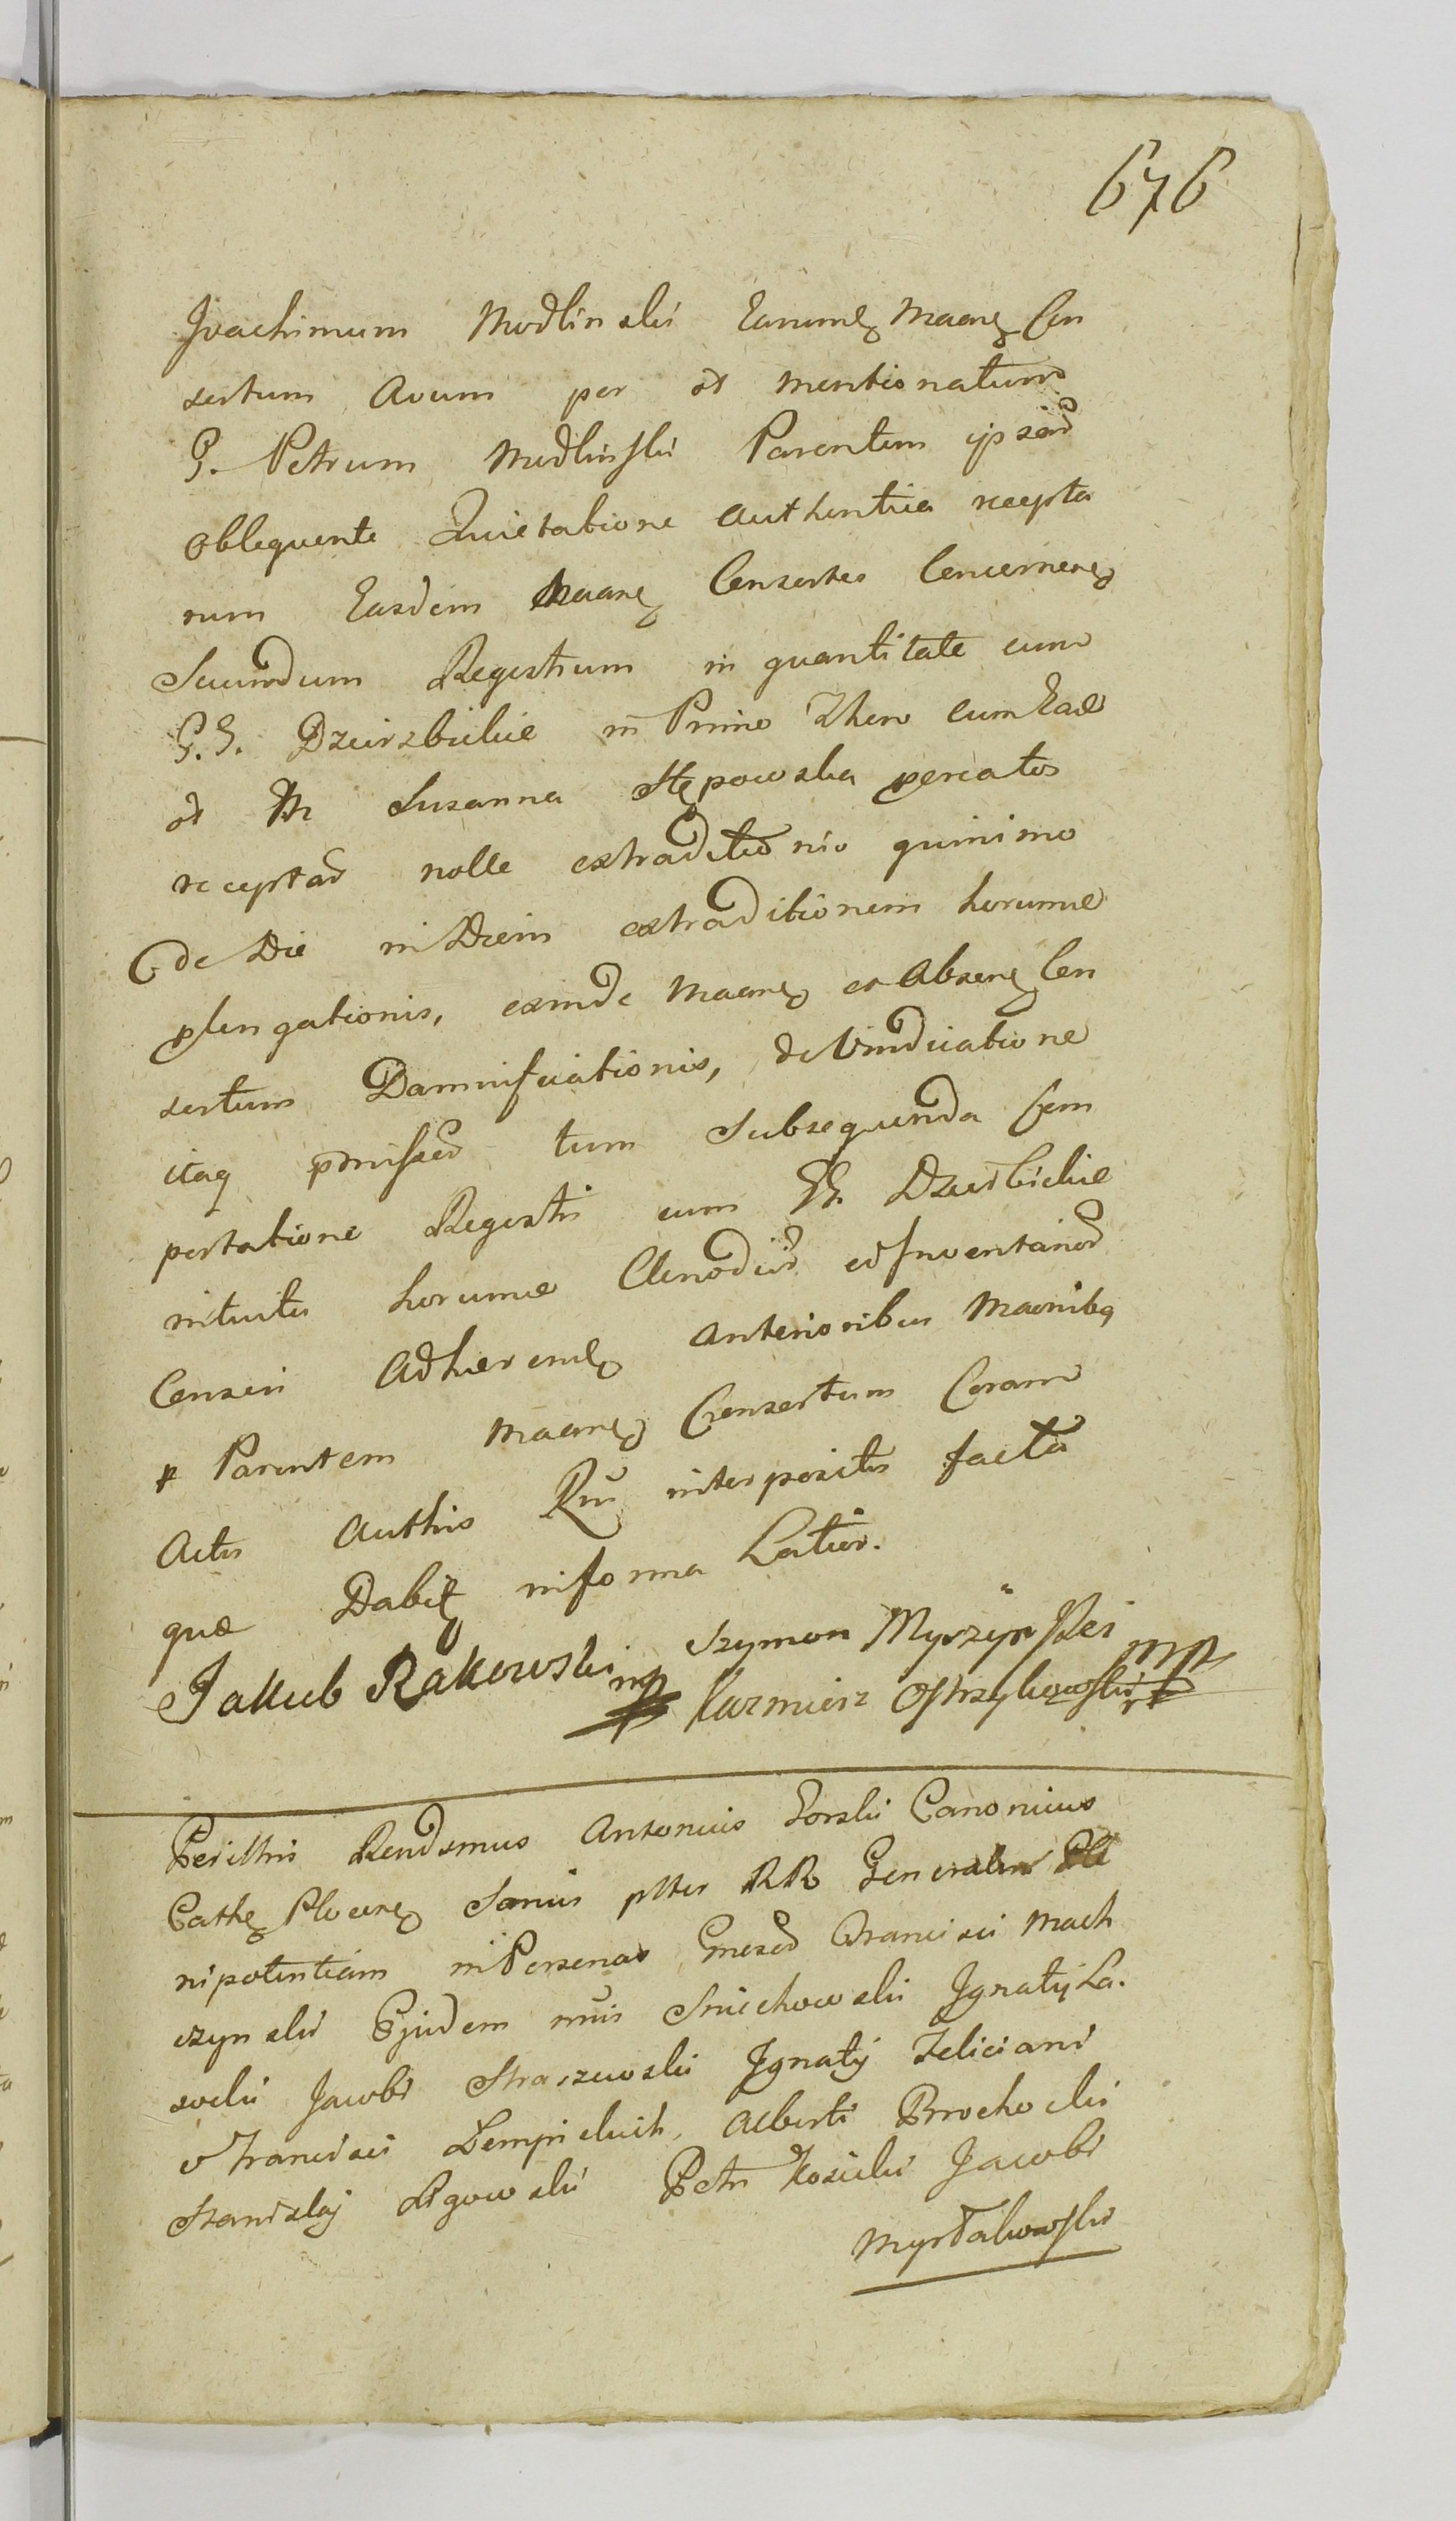 676
Joachimum Modlinski Earumq Maarq Con
sortum Avum per et mentionatum
G. Petrum Modlinski Parentem ipsar
obloquente Quietatione authentica recepta
rum Easdem Maarq Consortes Concernenq
Secundum Regestrum in quantitate cum
G.G. Dzierzbickie in Primo Thoro cum Ead
et M Susanna Stępowska peractos
receptar nolle extraditionis quinimo
de Die in Diem extraditionem horumve
plongationis, exinde Maarq et Absenq Con
sortum Damnificationis, de Vindicatione
itaq pmissor tum Subsequenda Com
portatione Regestri cum GG. Dzierbickie
intuitu horumve Clenodior et Inventarior
Censeri Adherendq anterioribus Maonibq
Parentem Maarq Consortum Coram
Actis Authis Rni interpositis facta
quæ Dabitq in forma Latior.
Szymon Myszynski
Jakub Rakowski mp
Kazmierz Ostrzykowski mp
Perillris Rendsmus Antonius Gorski Canonicus
Cathq Plocenq Sanus ptter RR Generalem Ple
nipotentiam in Personas Gnosor Francisci Mach
czynski Ejusdem mnis Smiechowski Ignatij La.
socki Jacobi Straszewski Ignatij Feliciani
et Francisci Lempickich, Alberti Brochocki
Stanislaj Ligowski Petri Kosicki Jacobi
Mystakowski